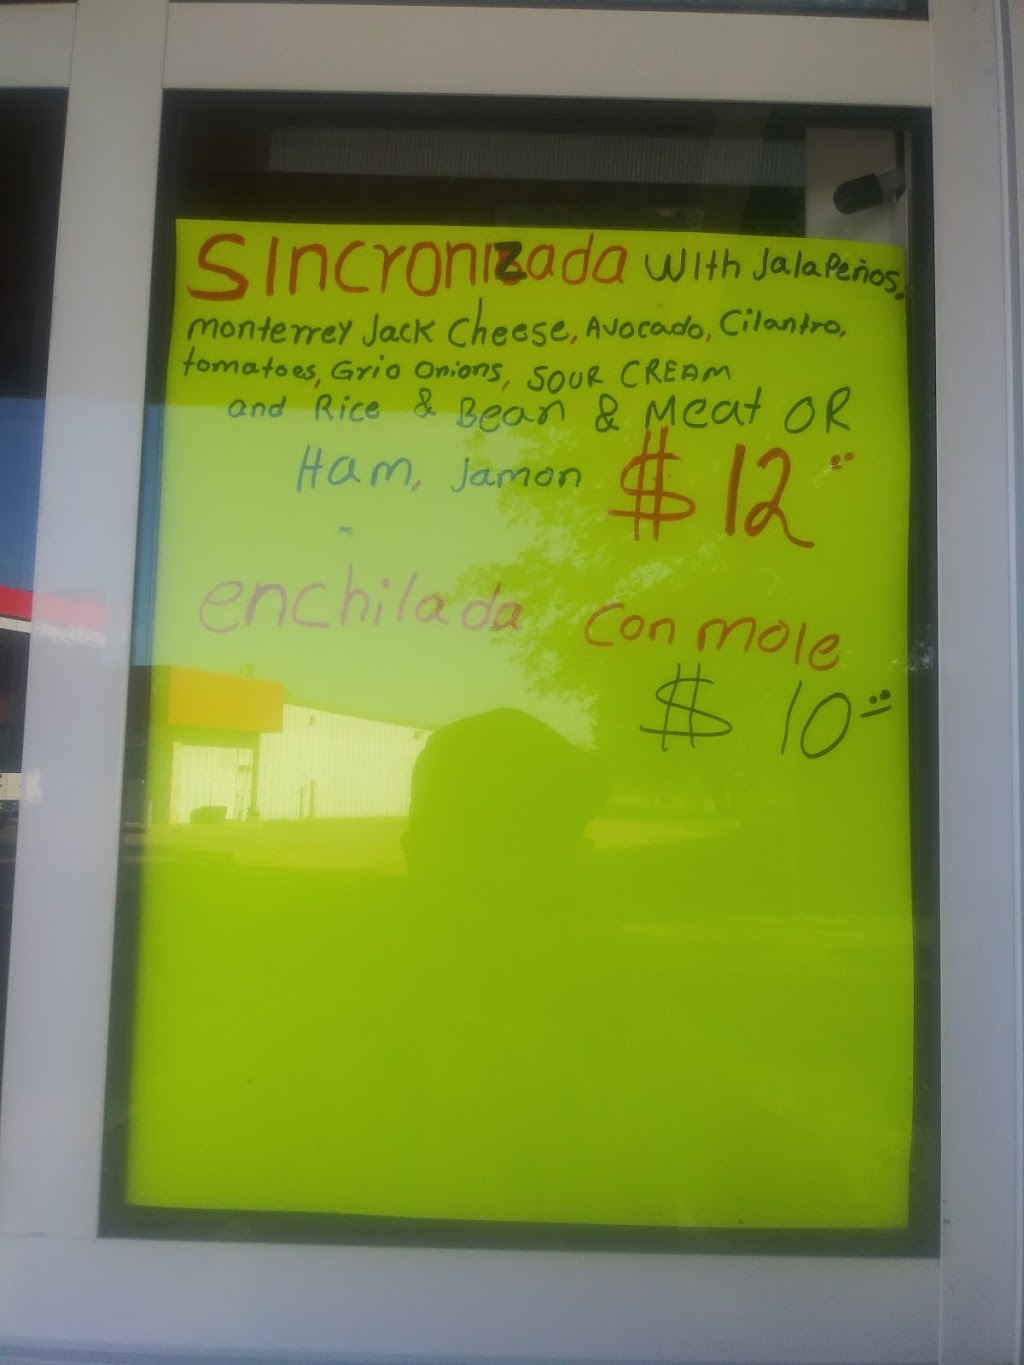 Sincronizada with Jalapeños,
monterrey Jack Cheese, Avocado, Cilantro,
tomatoes, Grio Onions, SOUR CREAM
and Rice & Bean & Meat OR
Ham, Jamon $12
enchilada con mole
$10